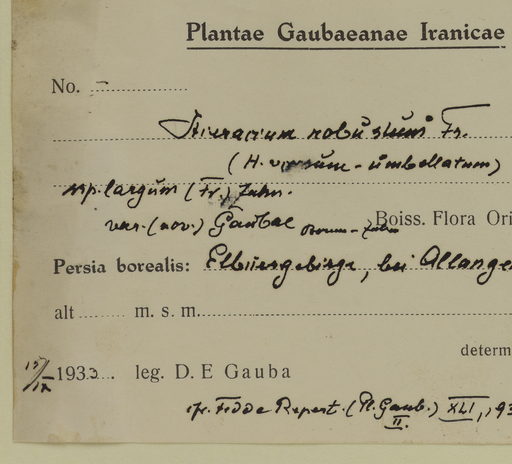 Plantae Gaubaeanae Iranicae
No. –
Hieracium robustum Fr.
(H. virosum - umbellatum)
ssp. largum (Fr.) Zahn.
var. (nov.) Gaubae Bornm - Zahn
Boiss. Flora Ori
Persia borealis: Elbursgebirge, bei Allange
alt m. s. m.
determ
15/IX 1933. leg. D. E Gauba
cfr. Fedde Repert. (Pl. Gaub.) XLI, 193
II.